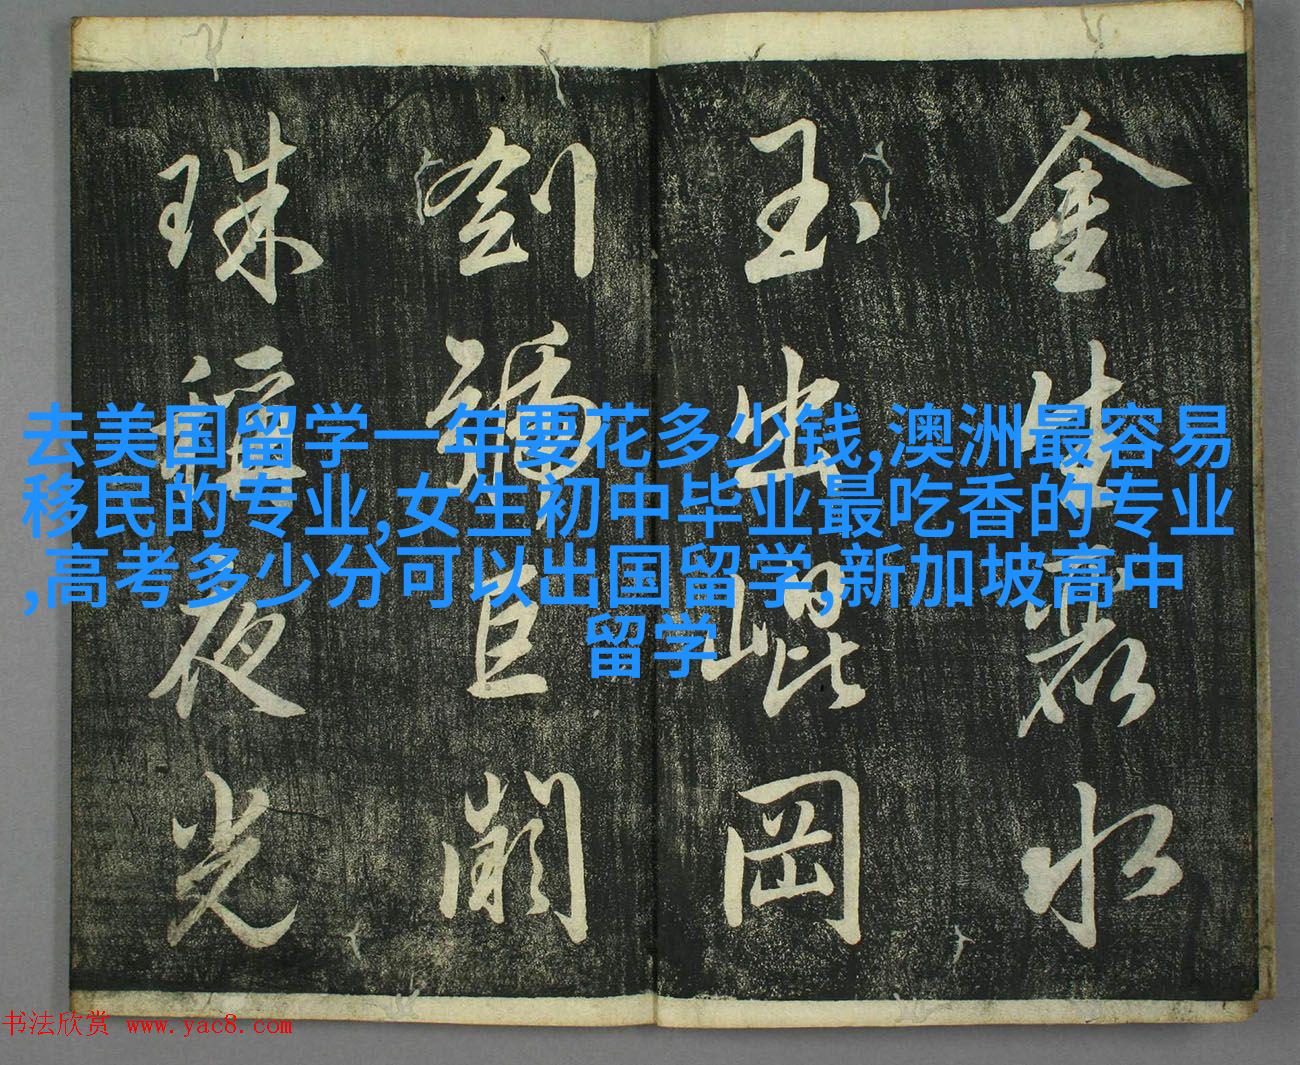 金生麗水
玉出崐岡
劍號巨闕
珠稱夜光
去美国留学一年要花多少钱,澳洲最容易
移民的专业,女生初中毕业最吃香的专业
,高考多少分可以出国留学,新加坡高中
留学
书法欣赏 www.yac8.com